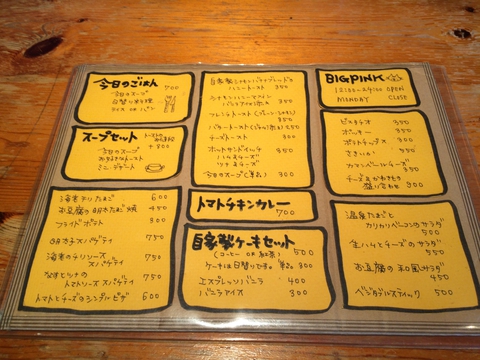 今日のごはん 700
今日のスープ
日替り料理
ライス OR パン
スープセット
+300
今日のスープ
お好きなトースト
ミニ デザート
海老チリたまご 600
お豆腐の明太たまご焼 450
フライドポテト 300
明太子スパゲティ 750
海老のチリソース
スパゲティ 750
なすとツナの
トマトソーススパゲティ 750
トマトとチーズのシンプルピザ 600
自家製シナモンバナナブレッドの
ハニートースト 350
シナモン
フレンチトースト
バタートースト
チーズトースト 300
ホットサンドイッチ 350
ハムチーズ
ツナチーズ
今日のスープ(単品) 300
トマトチキンカレー
700
自家製ケーキセット
(コーヒー OR 紅茶) 500
ケーキは日替りです。 単品 300
エスプレッソバニラ 400
バニラアイス 300
BIGPINK
12:00-24:00 OPEN
MONDAY CLOSE
ピスタチオ 500
ポッキー 500
ポテトチップス 300
さきいか
カマンベールチーズ
チーズとかわきもの
盛り合わせ 300
温泉たまごと
カリカリベーコンのサラダ
500
生ハムとチーズのサラダ
550
お豆腐の和風サラダ
450
ベジタブルスティック 500